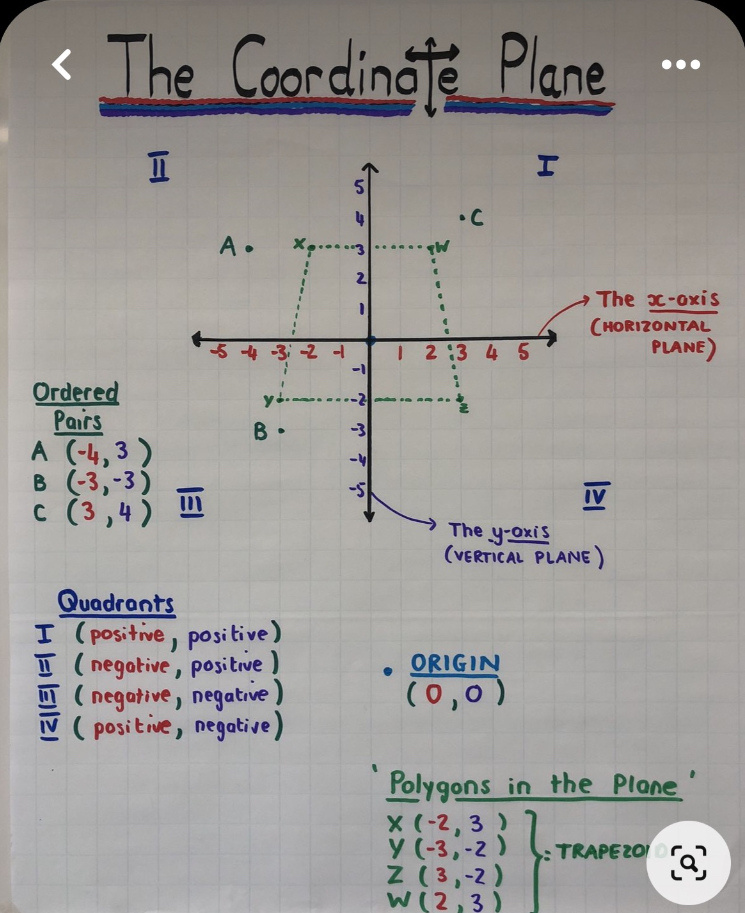 The Coordinate Plane
II
I
5
4
3
2
1
A
X
W
C
-5 -4 -3 -2 -1 1 2 3 4 5
The x-axis
(HORIZONTAL
PLANE)
-1
-2
-3
-4
-5
Y
Z
B
Ordered
Pairs
A (-4, 3)
B (-3, -3)
C (3, 4)
III
IV
The y-axis
(VERTICAL PLANE)
Quadrants
I (positive, positive)
II (negative, positive)
III (negative, negative)
IV (positive, negative)
• ORIGIN
(0, 0)
'Polygons in the Plane'
X (-2, 3)
Y (-3, -2)
Z (3, -2)
W (2, 3)
: TRAPEZOID